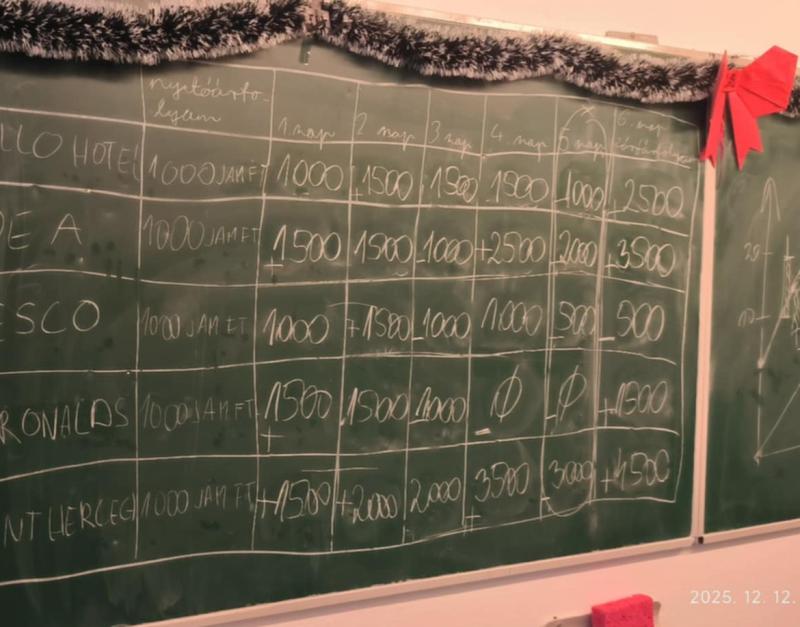 nyitóárfo-
lyam 1. nap 2 nap 3 nap 4. nap 5 nap 6. nap
LLO HOTEL 1000 JAMFT 1000 +1500 1500 1500 -1000 +2500
DE A 1000 JAMFT +1500 1500 -1000 +2500 -2000 +3500
ESCO 1000 JAMFT 1000 +1500 -1000 1000 -500 -500
RONALDS 1000 JAMFT +1500 1500 -1000 -0 -0 +1500
NT HERCEG 1000 JAMFT +1500 +2000 2000 +3500 -3000 +4500
2025. 12. 12.